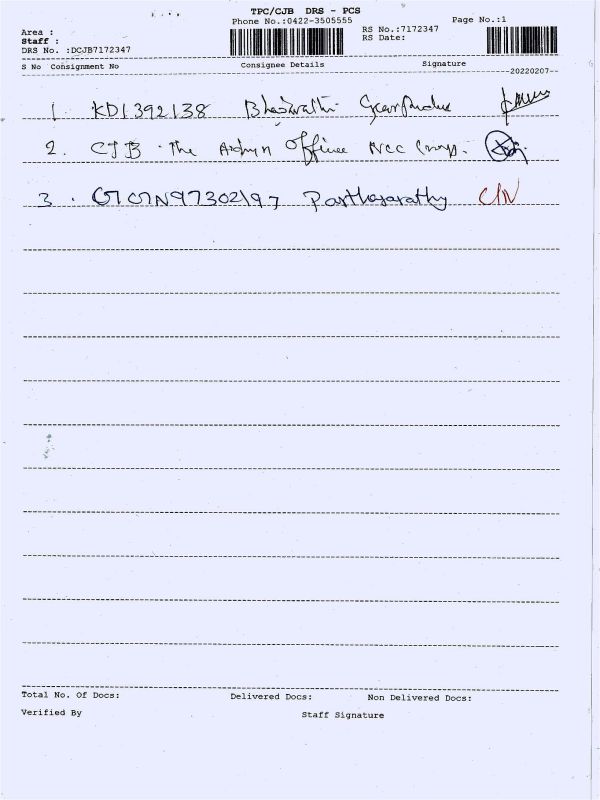 TPC/CJB DRS - PCS
Phone No.:0422-3505555
Page No.:1
Area :
Staff :
DRS No. :DCJB7172347
RS No.:7172347
RS Date:
S No Consignment No Consignee Details Signature
--20220207--
1. KD1392138
2. CJB. The Admn Officer NCC
3. Parthasarathy
Total No. Of Docs: Delivered Docs: Non Delivered Docs:
Verified By Staff Signature